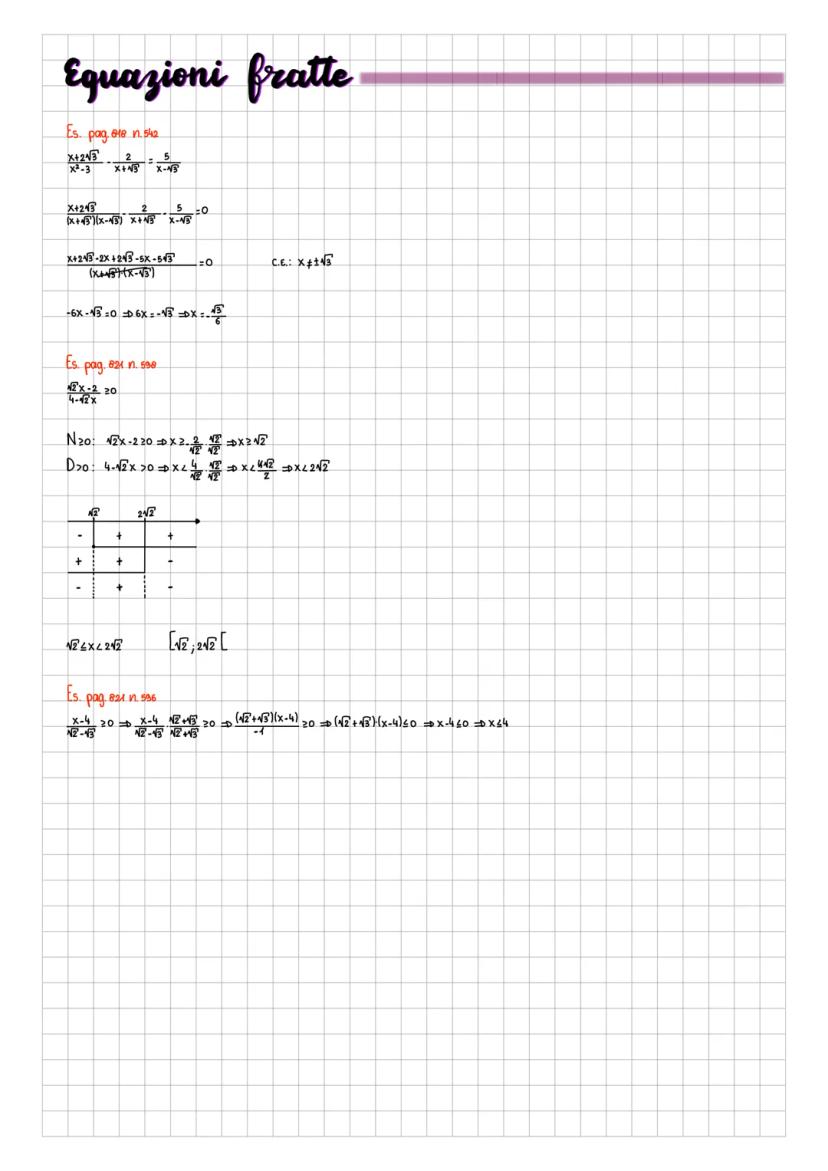 Equazioni fratte
Es. pag. 818 n. 542
(x+2√3)/(x²-3) - 2/(x+√3) = 5/(x-√3)
(x+2√3)/((x+√3)(x-√3)) - 2/(x+√3) - 5/(x-√3) = 0
(x+2√3-2x+2√3-5x-5√3)/((x+√3)(x-√3)) = 0 C.E.: x ≠ ±√3
-6x-√3=0 ⇒ 6x=-√3 ⇒ x=-√3/6
Es. pag. 821 n. 598
(√2x-2)/(4-√2x) ≥0
N≥0: √2x-2≥0 ⇒ x≥ 2/√2 · √2/√2 ⇒ x≥√2
D>0: 4-√2x>0 ⇒ x< 4/√2 · √2/√2 ⇒ x< 4√2/2 ⇒ x<2√2
√2 2√2
- + +
+ + -
- + -
√2≤x<2√2 [√2;2√2[
Es. pag. 821 n. 596
(x-4)/(√2-√3) ≥0 ⇒ (x-4)/(√2-√3) · (√2+√3)/(√2+√3) ≥0 ⇒ ((√2+√3)(x-4))/(-1) ≥0 ⇒ (√2+√3)·(x-4)≤0 ⇒ x-4≤0 ⇒ x≤4